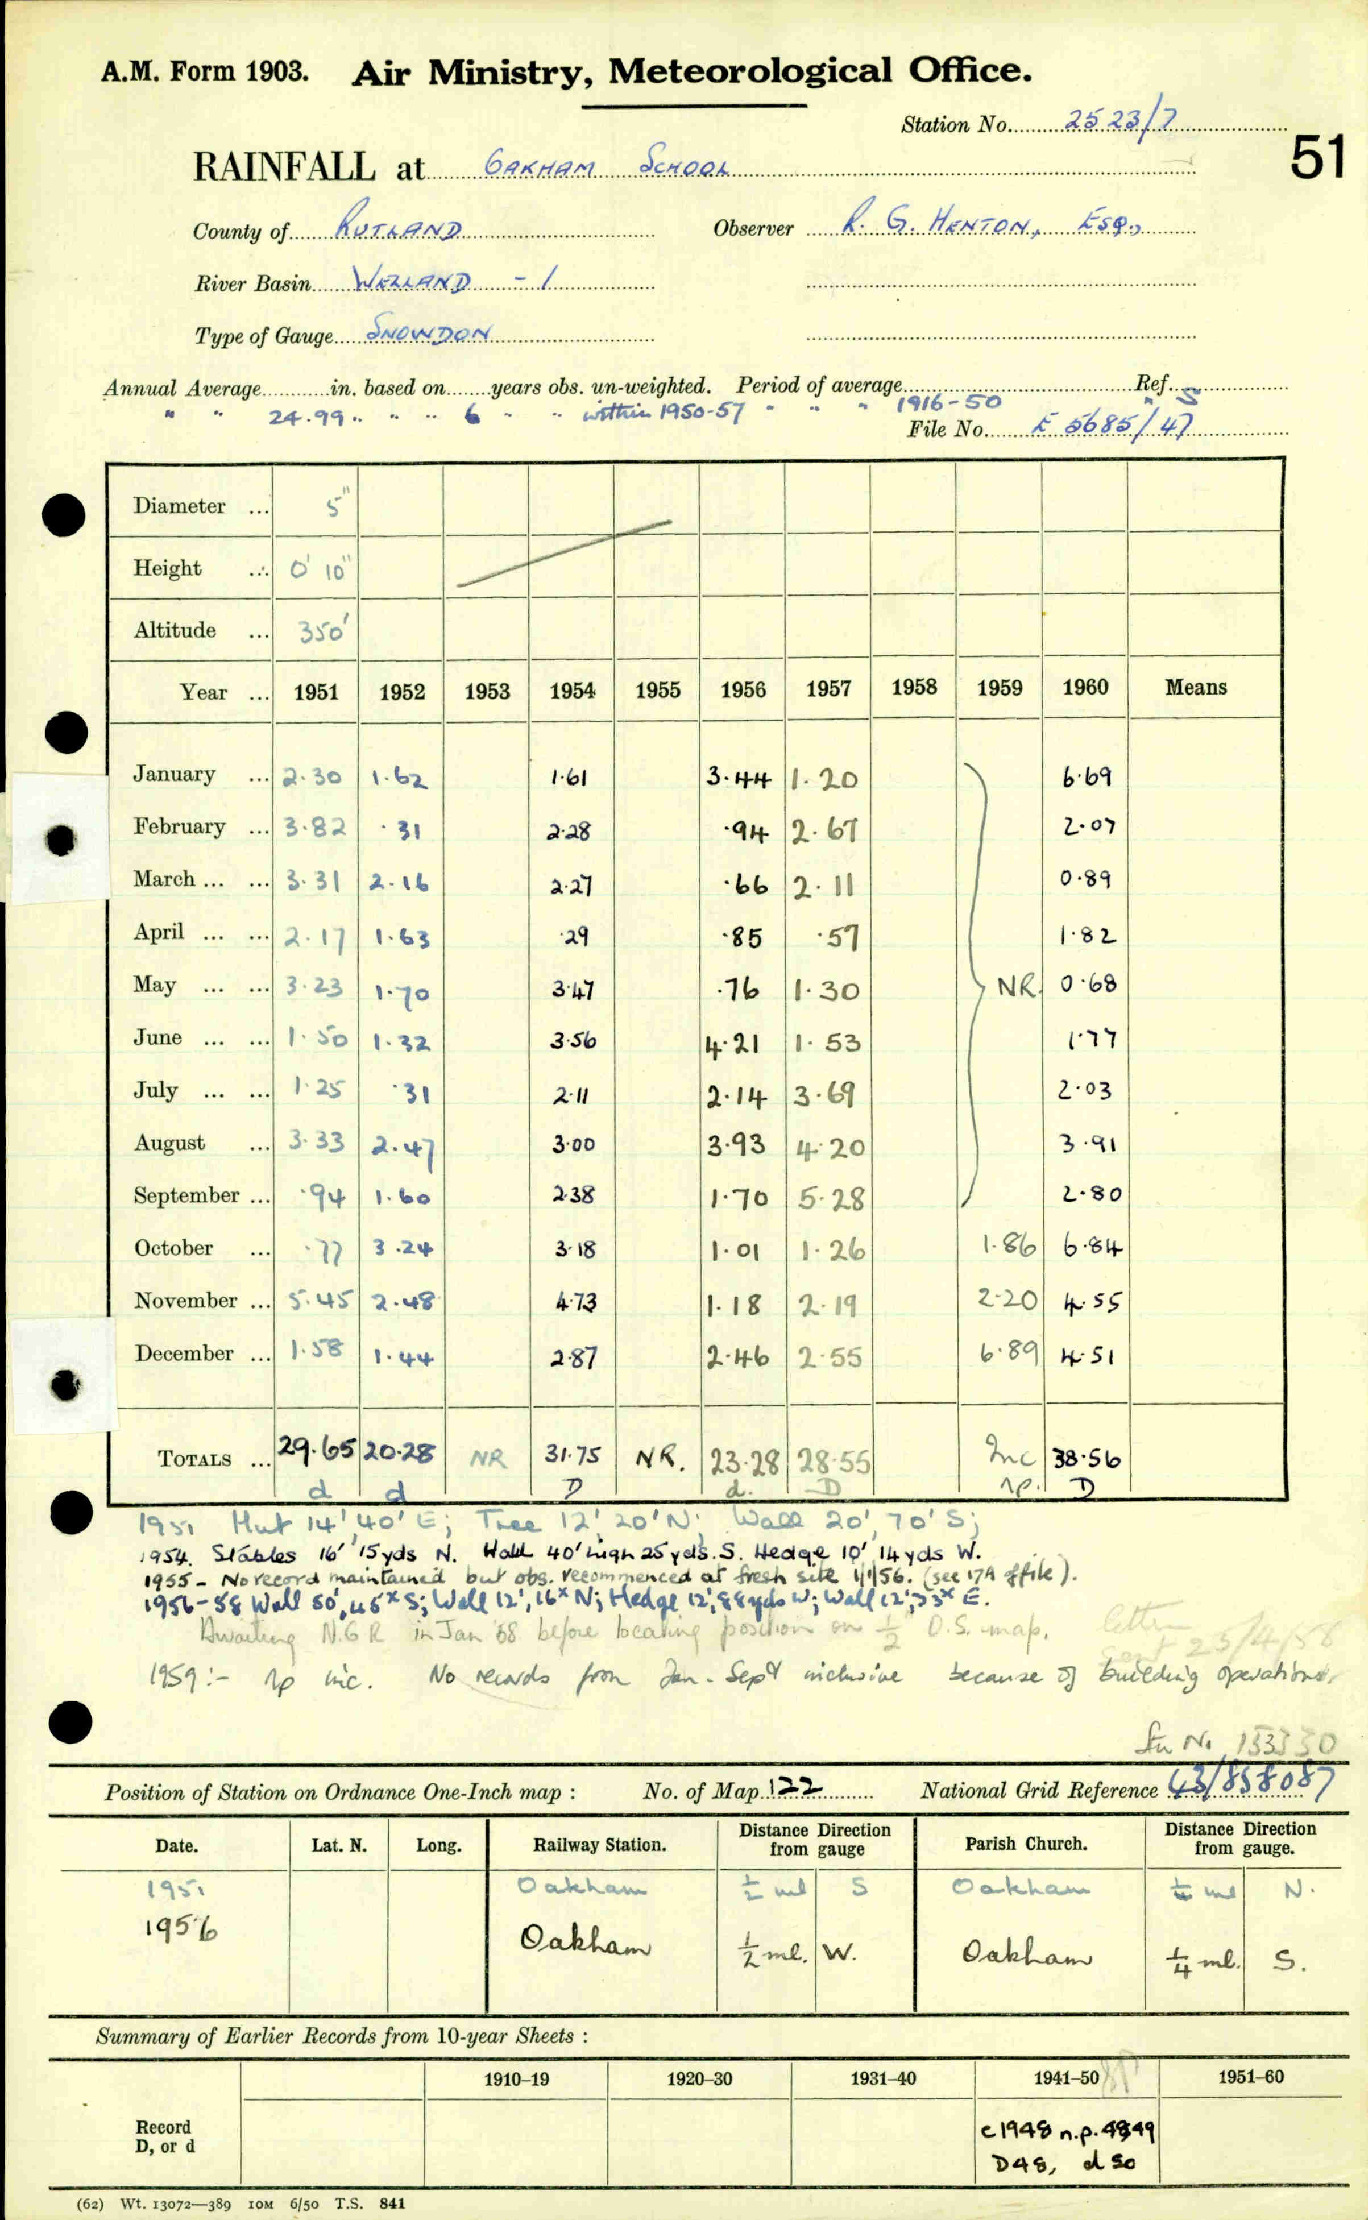 A.M. Form 1903. Air Ministry, Meteorological Office.
Station No. 2523/7
51
RAINFALL at OAKHAM SCHOOL
County of RUTLAND Observer R. G. HENTON, ESQ.,
River Basin WELLAND - 1
Type of Gauge SNOWDON
Annual Average in. based on years obs. un-weighted. Period of average Ref. S
" " 24.99 " " " 6 " " within 1950-57 " " " 1916-50 "
File No. E 5685/47
Diameter ... 5"
Height ... 0' 10"
Altitude ... 350'
Year ... 1951 1952 1953 1954 1955 1956 1957 1958 1959 1960 Means
January ... 2.30 1.62 1.61 3.44 1.20 6.69
February ... 3.82 .31 2.28 .94 2.67 2.07
March ... ... 3.31 2.16 2.27 .66 2.11 0.89
April ... ... 2.17 1.63 .29 .85 .57 1.82
May ... ... 3.23 1.70 3.47 .76 1.30 NR. 0.68
June ... ... 1.50 1.32 3.56 4.21 1.53 1.77
July ... ... 1.25 .31 2.11 2.14 3.69 2.03
August ... 3.33 2.47 3.00 3.93 4.20 3.91
September ... .94 1.60 2.38 1.70 5.28 2.80
October ... .77 3.24 3.18 1.01 1.26 1.86 6.84
November ... 5.45 2.48 4.73 1.18 2.19 2.20 4.55
December ... 1.58 1.44 2.87 2.46 2.55 6.89 4.51
TOTALS ... 29.65 20.28 NR 31.75 NR. 23.28 28.55 Inc 38.56
d d D d. D np. D
1951 Hut 14', 40' E; Tree 12', 20' N; Wall 20', 70' S;
1954. Stables 16' 15yds N. Hall 40' high 25yds. S. Hedge 10' 14yds W.
1955 - No record maintained but obs. recommenced at fresh site 1/1/56. (see 17A of file).
1956-58 Wall 50', 45x S; Wall 12', 16x N; Hedge 12', 88yds W; Wall 12', 33x E.
Awaiting N.G.R in Jan '58 before locating position on ½" O.S. map. letter
sent 25/4/58
1959:- np inc. No records from Jan - Sept inclusive because of building operations.
Stn No. 153330
Position of Station on Ordnance One-Inch map : No. of Map 122 National Grid Reference 43/858087
Date. Lat. N. Long. Railway Station. Distance from Direction gauge Parish Church. Distance from Direction gauge.
1951 Oakham ½ ml S Oakham ml N.
1956 Oakham ½ ml. W. Oakham ¼ ml. S.
Summary of Earlier Records from 10-year Sheets :
1910–19 1920–30 1931–40 1941–50 1951–60
Record c1948 n.p. 4849
D, or d D48, d 50
(62) Wt. 13072—389 10M 6/50 T.S. 841